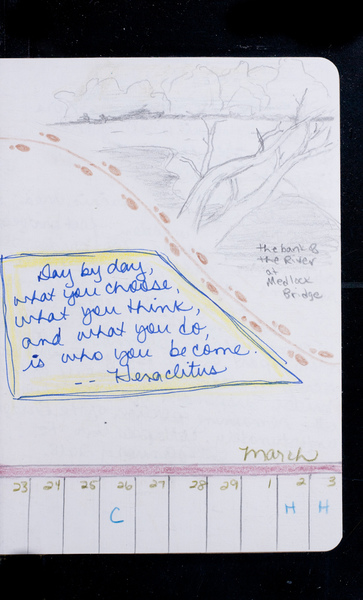 the bank &
the River
at
Medlock
Bridge
Day by day,
what you choose,
what you think,
and what you do,
is who you become.
-- Heraclitus
March
23 24 25 26 27 28 29 1 2 3
C H H